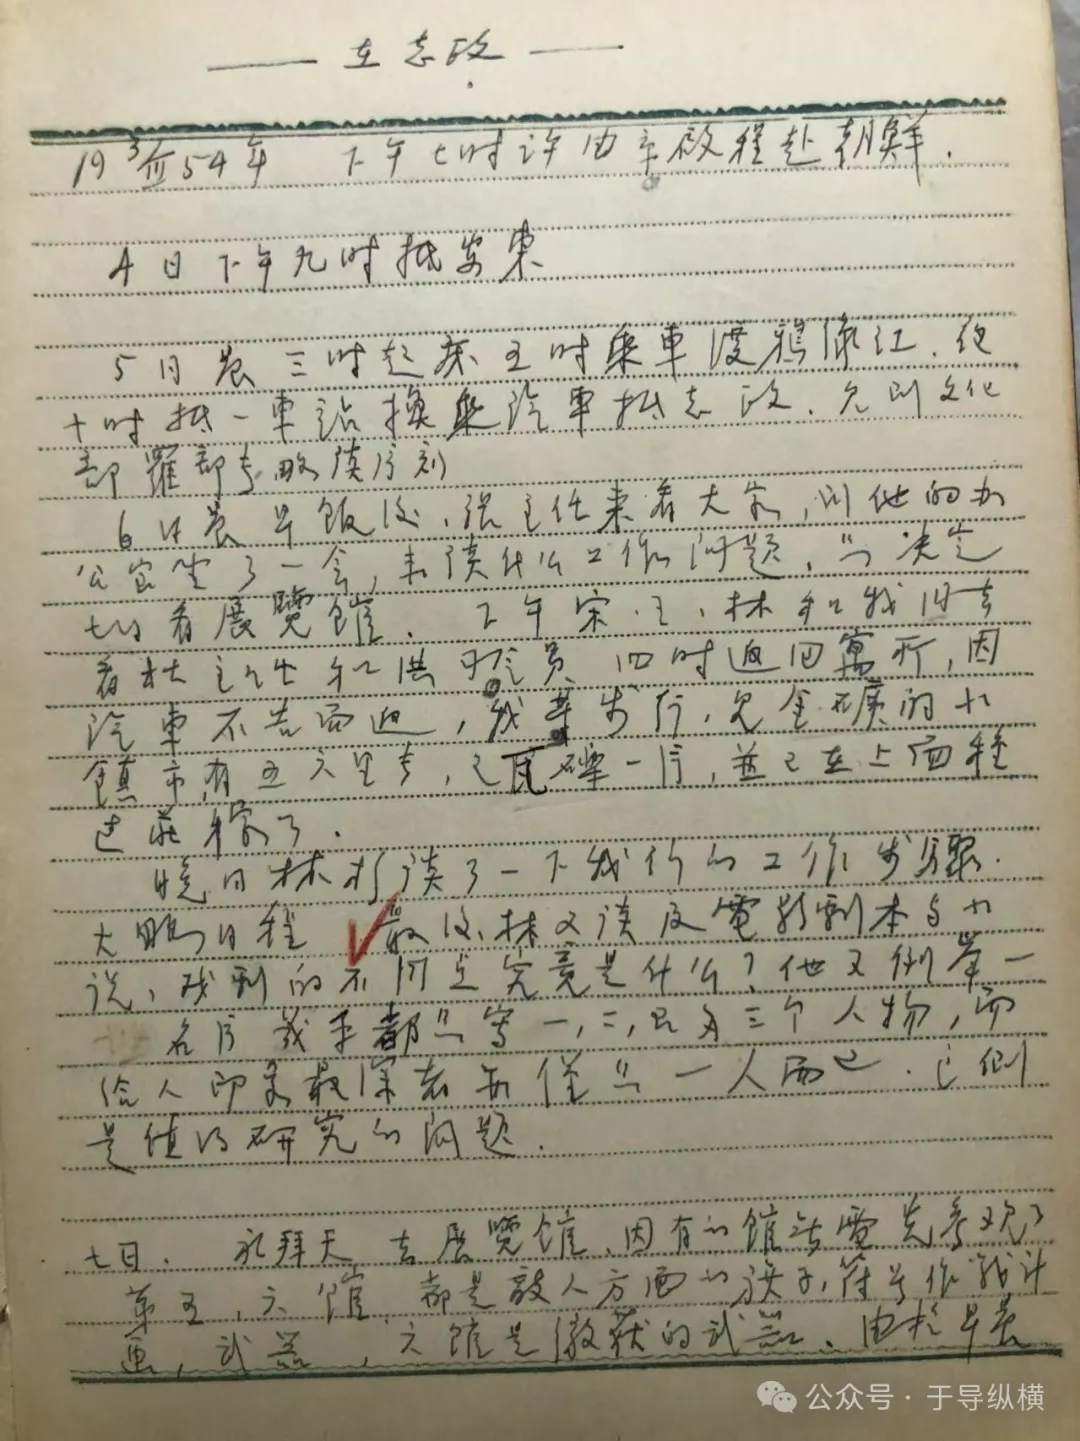 —— 在志政 ——
19 3/Ⅲ 54年 下午七时许由京启程赴朝鲜.
4日下午九时抵安东
5日晨三时起床五时乘車渡鸭绿江.夜
十时抵一車站換乘汽車抵志政.先到文化
部罗部长略谈片刻
6日晨早饭后、張主任来看大家,到他的办
公室坐了一会,未谈什么工作問題.只决定
七日看展覽館. 下午宋.王、林和我同去
看杜主任和洪 員.四时返回寓所,因
汽車不告而返,我等步行,见金矿的小
鎮市,有五六里长,已瓦礫一片,並已在上面种
过莊稼了.
晚间林杉谈了一下我们的工作步骤.
大 日程 最后、林又谈及電影劇本与小
说、戏剧的不同点究竟是什么?他又例举一
名片 几乎都只写一,二,只多三个人物,而
给人印象最深者却僅只一人而已.这倒
是值得研究的問題.
七日. 礼拜天 去展覽館、因有的館停電先参观了
第五,六館. 都是敌人方面的旗子,符号作战计
画,武器 ,六館是缴获的武器、由於早晨
公众号·于导纵横